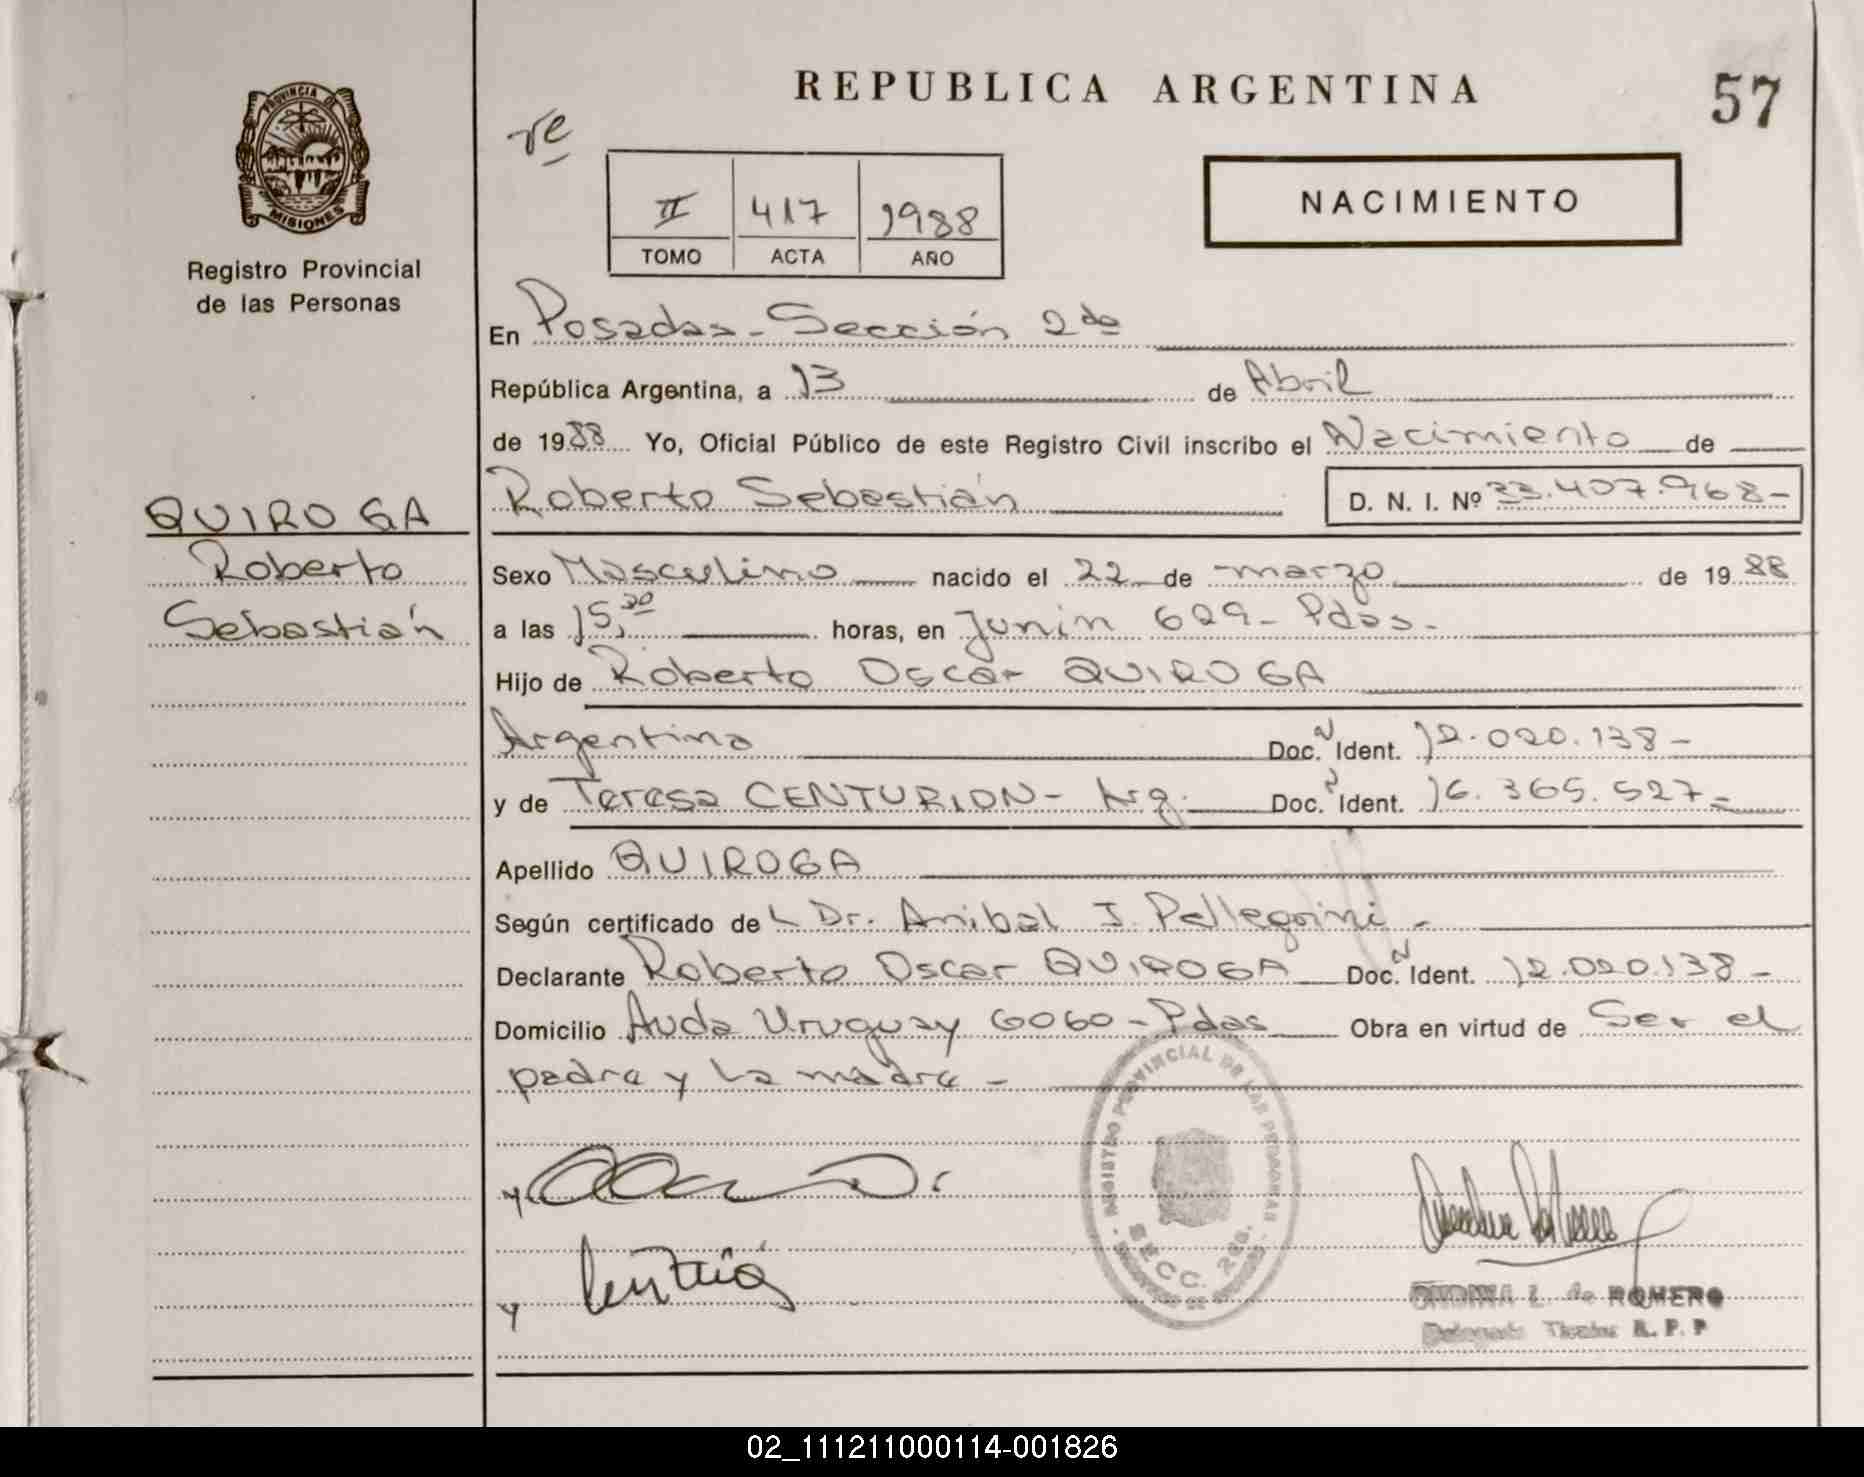 REPUBLICA ARGENTINA
57
PROVINCIA DE
MISIONES
Registro Provincial
de las Personas
II 417 1988
TOMO ACTA AÑO
NACIMIENTO
En Posadas - Sección 2da
República Argentina, a 13 de Abril
de 1988 Yo, Oficial Público de este Registro Civil inscribo el Nacimiento de
QUIROGA
Roberto
Sebastián
Roberto Sebastián D. N. I. Nº 33.407.968-
Sexo Masculino nacido el 22 de marzo de 1988
a las 15, horas, en Junín 629 - Pdas -
Hijo de Roberto Oscar QUIROGA
Argentina Doc. Ident. 12.020.138 -
y de Teresa CENTURION - Arg. Doc. Ident. 16.365.527 -
Apellido QUIROGA
Según certificado de L Dr. Anibal J. Pellegrini -
Declarante Roberto Oscar QUIROGA Doc. Ident. 12.020.138 -
Domicilio Avda Uruguay 6060 - Pdas Obra en virtud de Ser el
padre y la madre -
REGISTRO PROVINCIAL DE LAS PERSONAS
SECC. 2da.
y
y
L. de ROMERO
Titular R. P. P
02_111211000114-001826